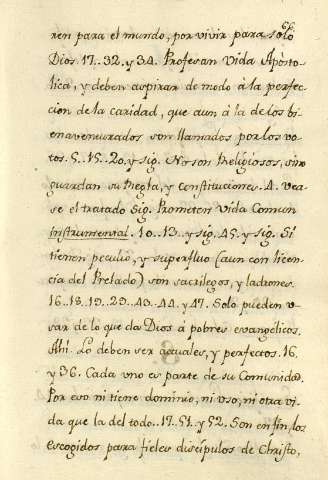 66
ren para el mundo, por vivir para solo
Dios. 17..32. y 34. Profesan Vida Apòsto-
lica, y deben aspirar de modo à la perfec-
cion de la caridad, que aun à la de los bi-
enavenurados son llamados por los vo-
tos. 5..15..20. y sig. No son Religiosos, sino
guardan su Regla, y constituciones. 4. vea-
se el tratado Sig. Prometen Vida Comun
instrumental. 10..13.. y sig. 45. y sig. Si
tienen peculio, y superfluo (aun con licen-
cia del Prelado) son sacrilegos, y ladrones.
16..18. 19..23. 43. 44. y 47. Solo pueden u-
sar de lo que da Dios à pobres evangelicos.
Ahi. Lo deben ser actuales, y perfectos. 16.
y 36. Cada uno es parte de su Comunidad.
Por eso ni tiene dominio, ni uso, ni otra vi-
da que la del todo..17. 51. y 52. Son en fin, los
escogidos para fieles discipulos de Christo,